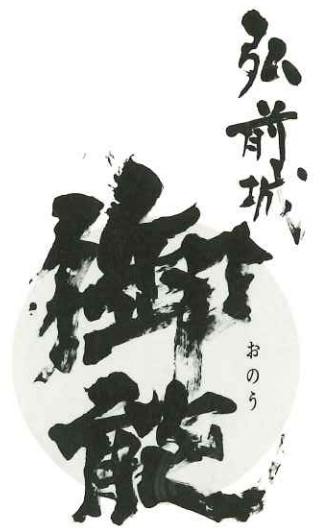 弘前城
御能
おのう